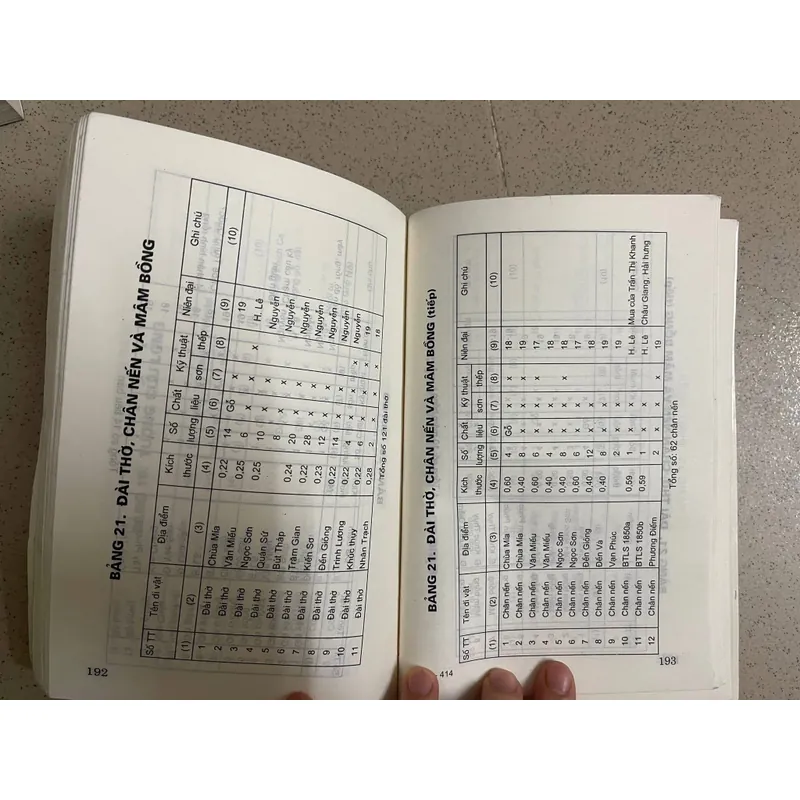 BẢNG 21. ĐÀI THỜ, CHÂN NẾN VÀ MÂM BỒNG
Số TT Tên di vật Địa điểm Kích thước Số lượng Chất liệu Kỹ thuật sơn thếp Niên đại Ghi chú
(1) (2) (3) (4) (5) (6) (7) (8) (9) (10)
1 Đài thờ Chùa Mía 0,22 14 Gỗ x 19
2 Đài thờ Văn Miếu 0,25 6 x x x H. Lê
3 Đài thờ Ngọc Sơn 0,25 10 x x Nguyễn
4 Đài thờ Quán Sứ 8 x x Nguyễn
5 Đài thờ Bút Tháp 0,24 20 x x Nguyễn
6 Đài thờ Trăm Gian 0,22 28 x x Nguyễn
7 Đài thờ Kiến Sơ 0,23 12 x x Nguyễn
8 Đài thờ Đền Gióng 0,22 14 x x Nguyễn
9 Đài thờ Trinh Lương 0,22 4 x x Nguyễn
10 Đài thờ Khúc thụy 0,22 6 x x x 19
11 Đài thờ Nhân Trạch 0,28 2 x x x 18
Tổng số 121 đài thờ
192
BẢNG 21. ĐÀI THỜ, CHÂN NẾN VÀ MÂM BỒNG (tiếp)
Số TT Tên di vật Địa điểm Kích thước Số lượng Chất liệu Kỹ thuật sơn thếp Niên đại Ghi chú
(1) (2) (3) (4) (5) (6) (7) (8) (9) (10)
1 Chân nến Chùa Mía 0,60 4 Gỗ x x 18
2 Chân nến Chùa Mía 0,40 4 x x x 19
3 Chân nến Văn Miếu 0,60 8 x x x 17
4 Chân nến Văn Miếu 0,40 6 x x 18
5 Chân nến Ngọc Sơn 0,40 8 x x x 18
6 Chân nến Ngọc Sơn 0,60 6 x x 17
7 Chân nến Đền Gióng 0,40 12 x x 19
8 Chân nến Đền Và 0,40 8 x x 19
9 Chân nến Vạn Phúc 2 x x 19
10 Chân nến BTLS 1850a 0,59 1 x x H. Lê Mua của Trần Thị Khanh
11 Chân nến BTLS 1850b 0,59 1 x x H. Lê Châu Giang; Hải hưng
12 Chân nến Phương Điếm 2 x x x 19
Tổng số: 62 chân nến
- 414
193